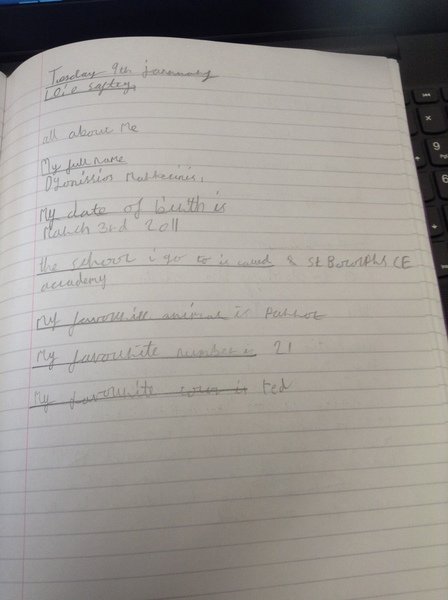 Tuesday 9th january
all about me
My full name
Dyonissios
My date of birth is
March 3rd 2011
the school i go to is called St Botolphs CE
academy
My favourite animal is Parrot
My favourite number is 21
My favourite colour is red